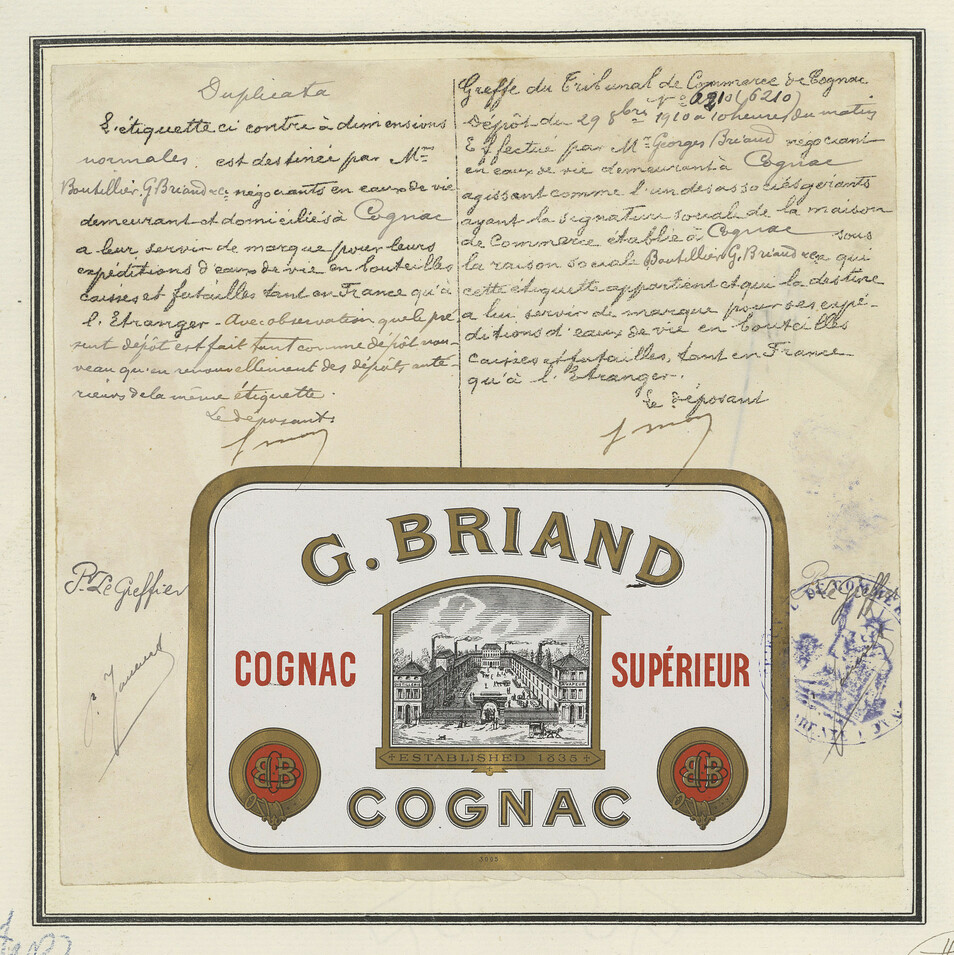 Duplicata
L'étiquette ci contre à dimensions
normales, est destinée par Mrs
Boutillier G. Briand & Ce négociants en eaux de vie
demeurant et domiciliés à Cognac
a leur servir de marque pour leurs
expéditions d'eaux de vie en bouteilles
caisses et futailles tant en France qu'à
l'Etranger - Avec observation que le pré
sent dépôt est fait tant comme dépôt nou-
veau qu'en renouvellement des dépôts anté-
rieurs de la même étiquette.
Le déposants
Greffe du Tribunal de Commerce de Cognac
No (6210)
Dépôt du 29 8bre 1910 a 10 heures du matin
Effectué par Mr Georges Briand négociant
en eaux de vie demeurant à Cognac
agissant comme l'un des associés gérants
ayant la signature sociale de la maison
de Commerce établie à Cognac sous
la raison sociale Boutillier G. Briand & Ce qui
cette étiquette appartient et qui la destine
a lui servir de marque pour ses expé-
ditions d'eaux de vie en bouteilles
caisses et futailles, tant en France
qu'à l'Etranger.
Le déposant
Pr Le Greffier
Pr Le Greffier
G. BRIAND
COGNAC SUPÉRIEUR
ESTABLISHED 1835
COGNAC